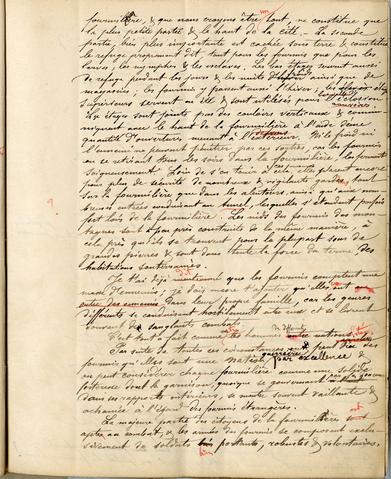 fourmilière, & que nous croyons être tout, ne constitue que
la plus petite partie & le haut de la cité. La seconde
partie, bien plus importante est cachée sous terre & constitue
le refuge proprement dit, tant pour les fourmis que pour les
larves, les nymphes & les cocons. Les bas étages servent aussi
de refuge pendant les jours & les nuits ainsi que de
magasins; les fourmis y passent aussi l'hiver; les étages
supérieurs servent au & sont utilisés pour l'éclosion
Les étages sont joints par des couloirs verticaux &
niquent avec le haut de la fourmilière à l'aide d'une
quantité d'ouvertures menant à l'extérieur. Ni le froid ni
l'ennemi ne peuvent pénétrer par ces car les fourmis
en se retirant tous les soirs dans la fourmilière, les ferment
soigneusement. Loin de s'en tenir à cela, elles placent encore
pour plus de sécurité de nombreux & vigilants gardes, tant
sur la fourmilière que dans les alentours, ainsi qu'aux nom-
breuses entrées conduisant au tunnel, lesquelles s'étendent parfois
fort loin de la fourmilière. Les nids des fourmis des mon-
tagnes sont à peu près construits de la même manière, à
cela près qu'ils se trouvent pour la plupart sous de
grandes pierres & sont dans toute la force du terme des
habitations souterraines.
Je t'ai déjà mentionné que les fourmis comptent une
masse d'ennemis, je dois encore t'ajouter qu'elles ont
des ennemies dans leur propre famille, car les genres
différents se conduisent hostilement entre eux et se livrent
souvent de sanglants combats.
C'est tout à fait comme les hommes entre nations
Par suite de toutes ces circonstances on peut dire des
fourmis qu'elles sont une nation guerrière par excellence &
on peut considérer chaque fourmilière comme une solide
forteresse dont la garnison, quoique se gouvernant
dans ses rapports intérieurs, se montre souvent vaillante &
acharnée à l'égard des fourmis étrangères.
La majeure partie des citoyens de la fourmilière est
apte au combat, & les armées des fourmis se composent exclu-
sivement de soldats bien portants, robustes & volontaires.